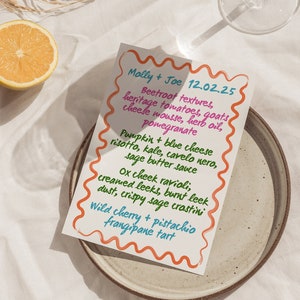 Molly + Joe 12.02.25
Beetroot textures,
heritage tomatoes, goats
cheese mousse, herb oil,
pomegranate
Pumpkin + blue cheese
risotto, kale, cavelo nero,
sage butter sauce
Ox cheek ravioli,
creamed leeks, burnt leek
dust, crispy sage crostini
Wild cherry + pistachio
frangipane tart